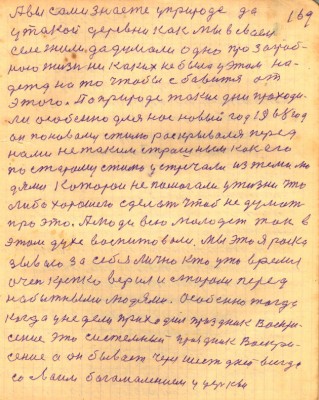 169
А вы сами знаете у природе да
у такой деревни как мы в своем
селе жили, да думали одно про загроб-
ную жизнь ни каких не было у этом на-
дежд на то чтобы избавится от
этого. По природе такие дни проходи-
ли особенно для нас новый год 1968 год
он по новому стилю раскрывался перед
нами не таким страшным как его
по старому стилю устречали из теми лю
дями которой не помогали у жизни что
либо хорошего сделать чтоб не думат
про это. А люди всю молодеж так в
этом духе воспитовали. Мы это я расказ
зывало за себя лично кто уто время
очен крепко верил и старому перед
набитными людями. Особенно тогда
когда у неделю приходил праздник Воскри-
сение это системный праздник Воскри-
сение а он бывает через шест дней всегда
со своим богамалением у церкви